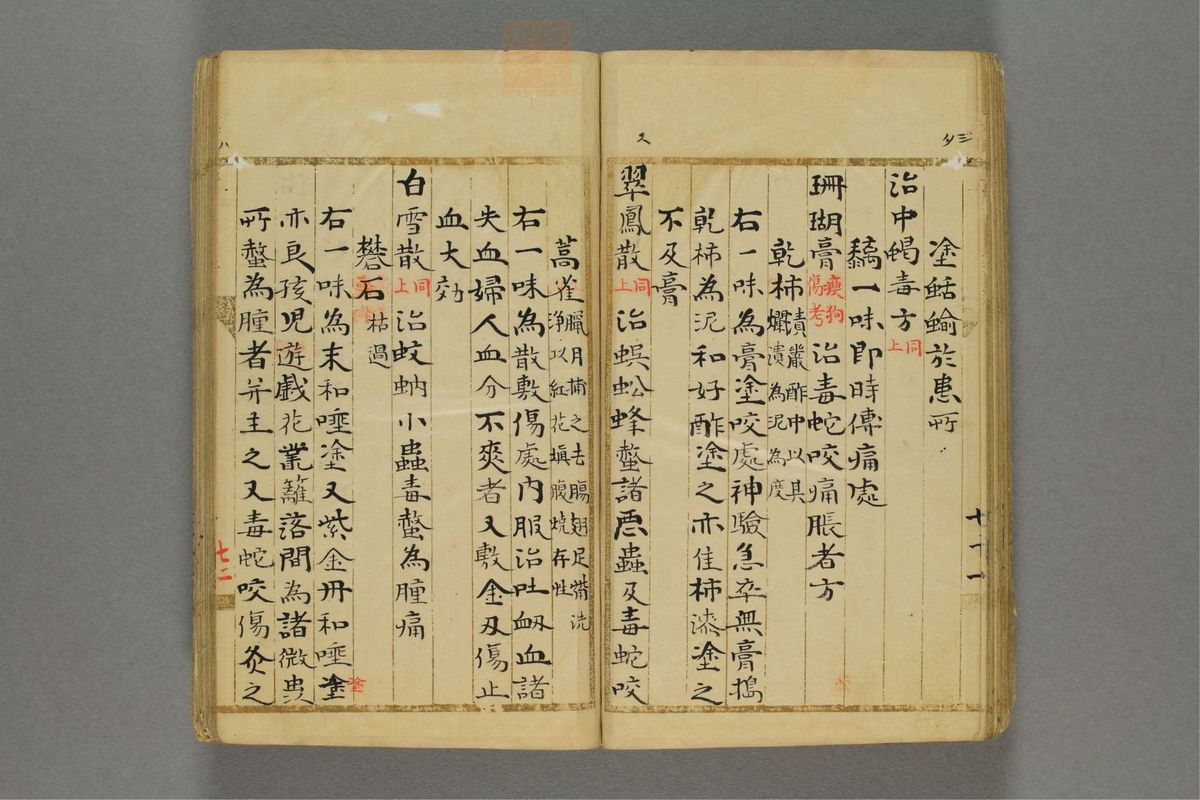 塗蛞蝓於患所
治中蝎毒方同上
䵑一味即時傅痛處
珊瑚膏瘈狗傷考治毒蛇咬痛脹者方
乾柿漬釅酢中以具爛潰為泥為度
右一味為膏塗咬處神驗急卒無膏搗
乾柿為泥和好酢塗之亦佳柿漆塗之
不及膏
翠鳳散同上治蜈蚣蜂螫諸悪蟲及毒蛇咬
蒿雀臘月捕之去腸翅足觜洗浄以紅花塡腹焼存性
右一味為散敷傷處内服治吐衂血諸
失血婦人血分不爽者又敷金刃傷止
血大効
白雪散同上治蚊蚋小蟲毒螫為腫痛
礬石枯過
右一味為末和唾塗又紫金丹和唾塗
亦良孩児遊戯花業籬落間為諸微虫
所螫為腫者并主之又毒蛇咬傷灸之
七十一
七二